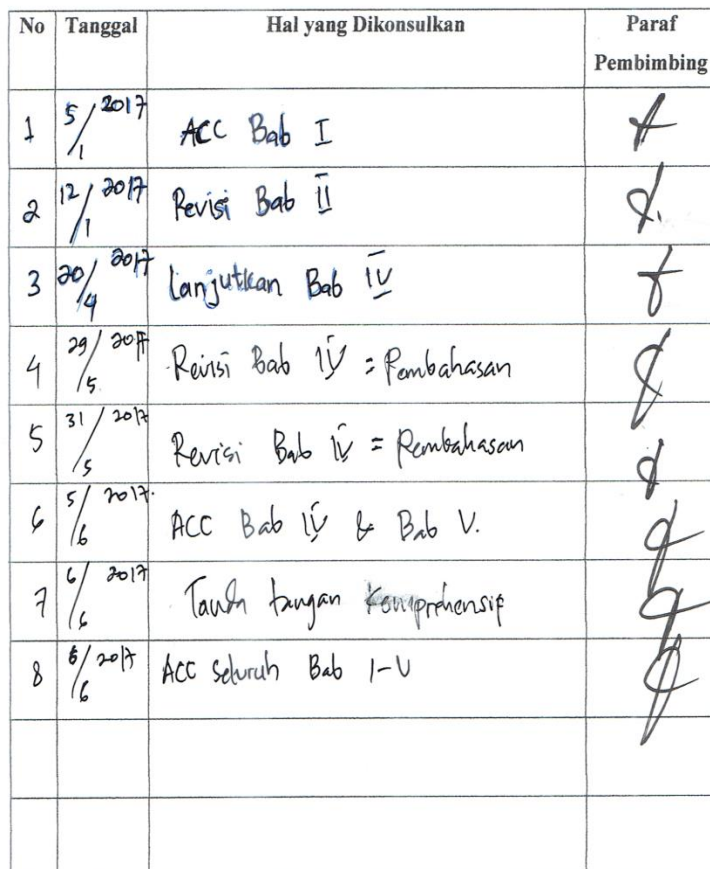 No Tanggal Hal yang Dikonsulkan Paraf Pembimbing
1 5/1 2017 ACC Bab I
2 12/1 2017 Revisi Bab II
3 20/4 2017 Lanjutkan Bab IV
4 29/5 2017 Revisi Bab IV = Pembahasan
5 31/5 2017 Revisi Bab IV = Pembahasan
6 5/6 2017. ACC Bab IV & Bab V.
7 6/6 2017 Tanda tangan Komprehensif
8 6/6 2017 ACC seluruh Bab I-V